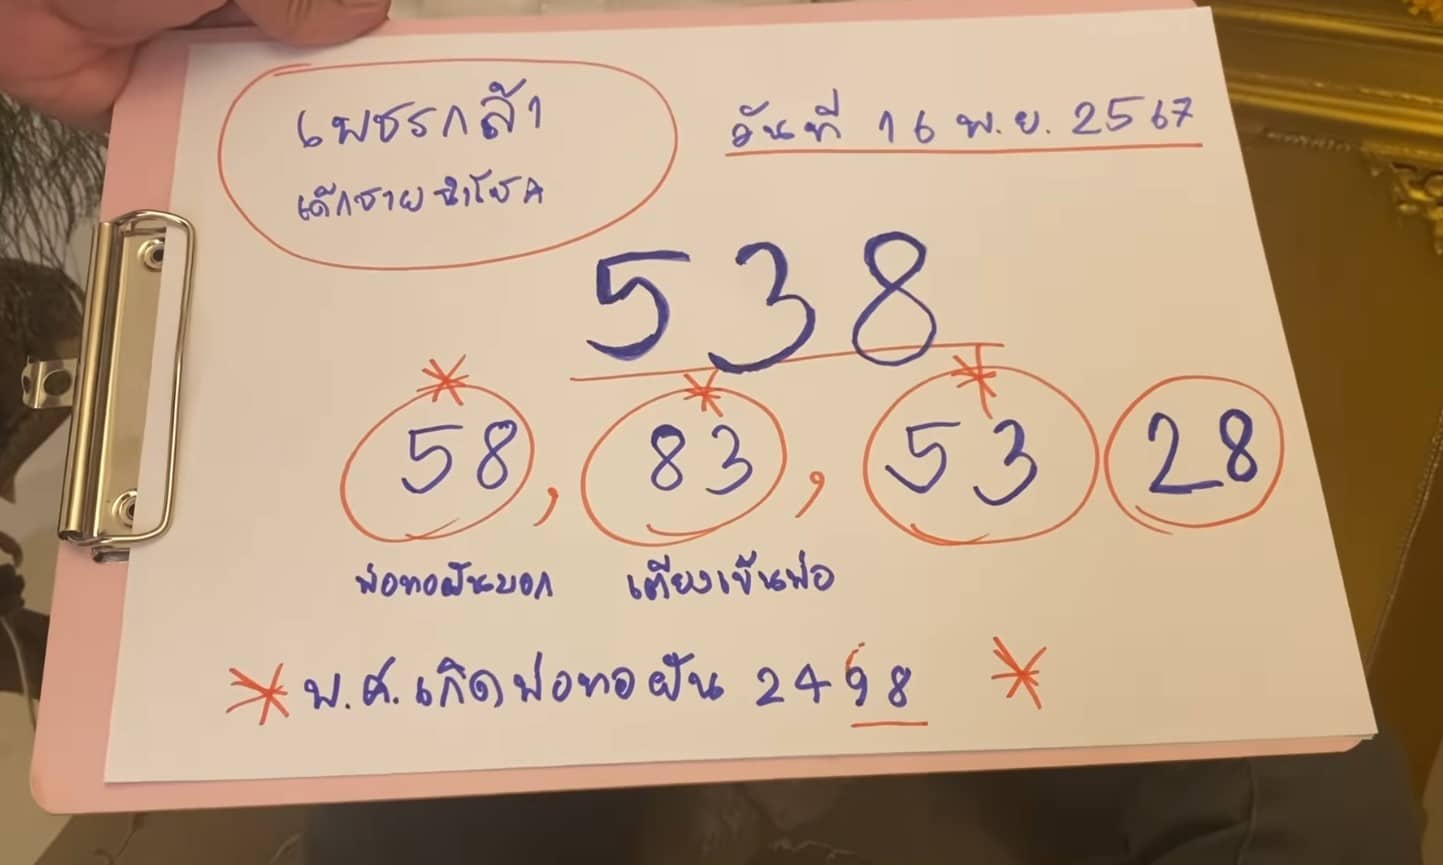 เพชรกล้า
วันที่ 16 พ.ย. 2567
เด็กชายนำโชค
538
58, 83, 53 28
พ่อทอฝันบอก เตียงเข็นพ่อ
พ.ศ.เกิดพ่อทอฝัน 2498